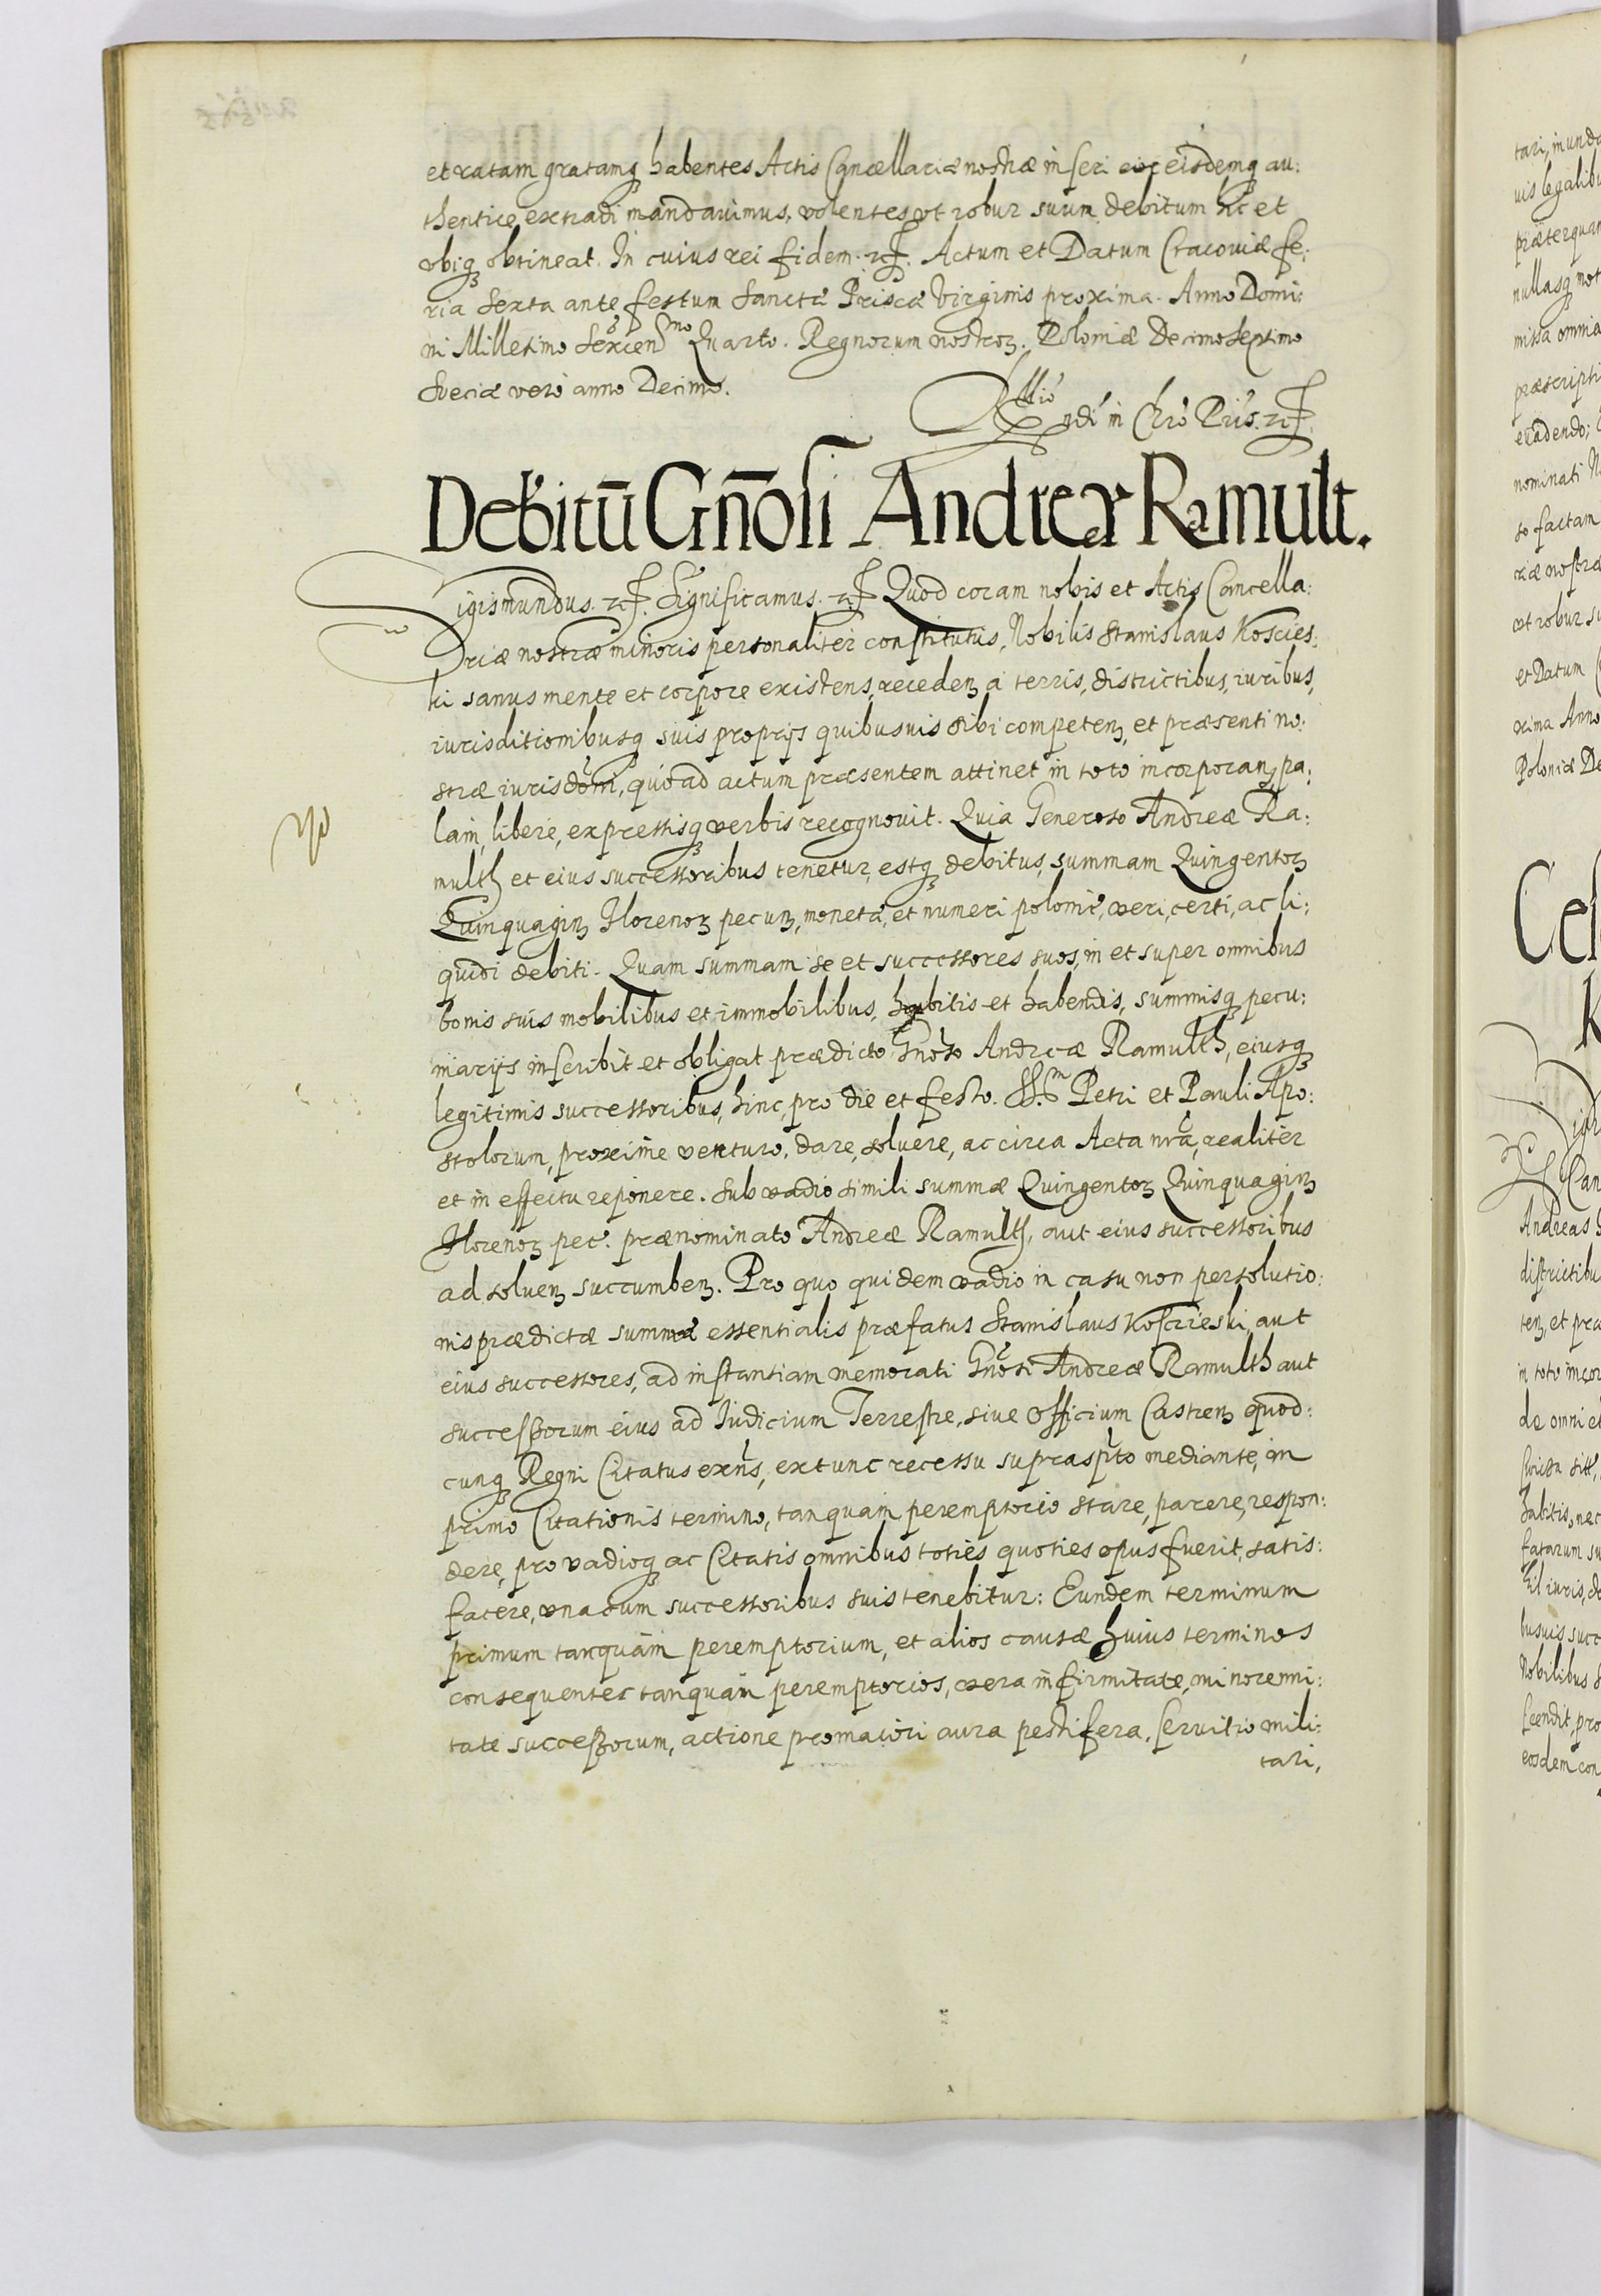 et ratam gratamq habentes Actis Cancellariæ nostræ inseri eisdemq au:
thentice extradi mandavimus. volentes vt robur suum debitum hic et
vbiq obtineat. In cuius rei fidem. etc. Actum et Datum Cracoviæ fe:
ria Sexta ante festum Sanctæ Priscæ Virginis proxima. Anno Domi:
ni Millesimo Sexcen^mo Quarto. Regnorum nostror. Poloniæ Decimo Septimo
Sveciæ verò anno Decimo.
Rndi in Chro Pris. etc.
Debitū Gn̄osi Andreæ Ramult.
Sigismundus. etc. Significamus. etc. Quod coram nobis et Actis Cancella:
riæ nostræ minoris personaliter constitutus, Nobilis Stanislaus Koscies:
ki sanus mente et corpore existens, receden à terris, districtibus, iuribus,
iurisditionibusq suis proprijs quibusuis sibi competen, et præsenti no:
stræ iurisdom, quo ad actum præsentem attinet in toto incorporan, pa:
lam, libere, expressisq verbis recognovit. Quia Generoso Andreæ Ra:
multh et eius successoribus tenetur, estq debitus, summam Quingentor
Quinquagin Florenor pecun, monetæ, et numeri polonic, veri, certi, ac li:
quidi debiti. Quam summam se et successores suos, in et super omnibus
bonis suis mobilibus et immobilibus, habitis et habendis, summisq pecu:
niarijs inscribit et obligat prædicto Gnoso Andreæ Ramulth, eiusq
legitimis successoribus, hinc, pro die et festo. SS.m Petri et Pauli Apo:
stolorum, proxime venturo, dare, soluere, ac circa Acta nra, realiter
et in effectu reponere. Sub vadio simili summæ Quingentor Quinquagin
Florenor pec. prænominato Andreæ Ramulth, aut eius successoribus
ad soluen succumben. Pro quo quidem vadio in casu non persolutio:
nis prædictæ summæ essentialis præfatus Stanislaus Koscieski, aut
eius successores, ad instantiam memorati Gnosi Andreæ Ramulth aut
successorum eius ad Iudicium Terrestre, siue Officium Castren quod:
cunq Regni Citatus exns, extunc recessu suprasпto mediante, in
primo Citationis termino, tanquam peremptorio stare, parere, respon:
dere, pro vadioq ac Citatis omnibus toties quoties opus fuerit, satis:
facere, vna cum successoribus suis tenebitur: Eundem terminum
primum tanquam peremptorium, et alios causæ huius terminos
consequenter tanquam peremptorios, vera infirmitate, minorenni:
tate successorum, actione pro maiori aura pestifera, servitio mili:
tari,